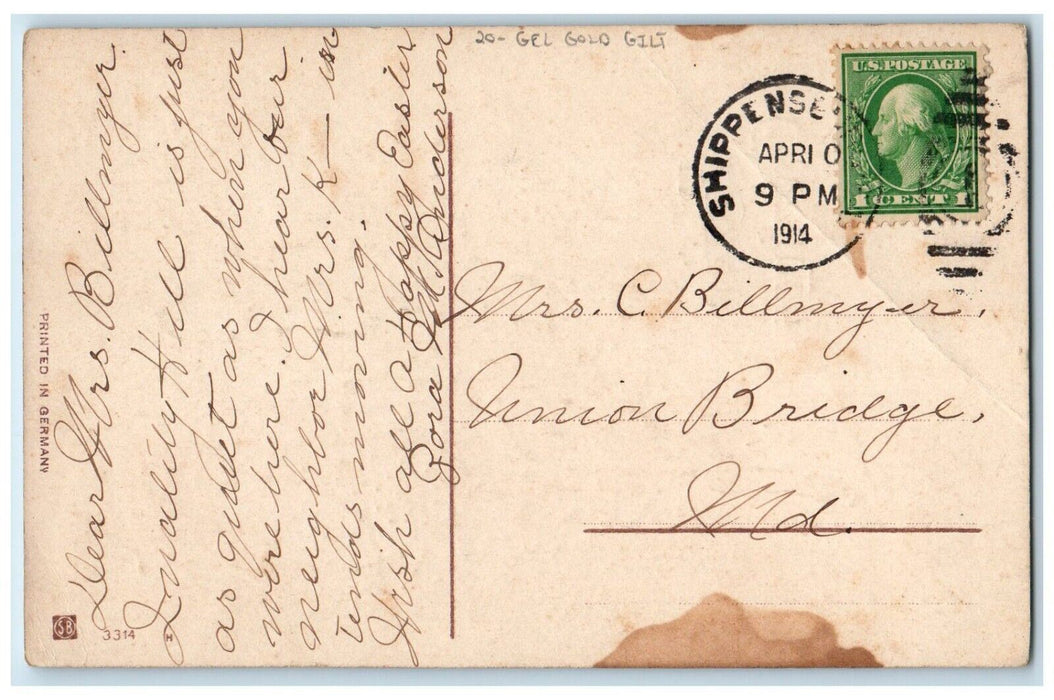 20- GEL GOLD GILT
Dear Mrs. Billmyer.
Quality Hill is just
as quiet as when you
were here. I hear our
neighbor Mrs. K— in
tends moving.
Wish all a Happy Easter
Zora M. Anderson
PRINTED IN GERMANY
SB
3314
H
SHIPPENSB
APR 10
9 PM
1914
U.S. POSTAGE
1 CENT 1
Mrs. C. Billmyer.
Union Bridge,
Md.